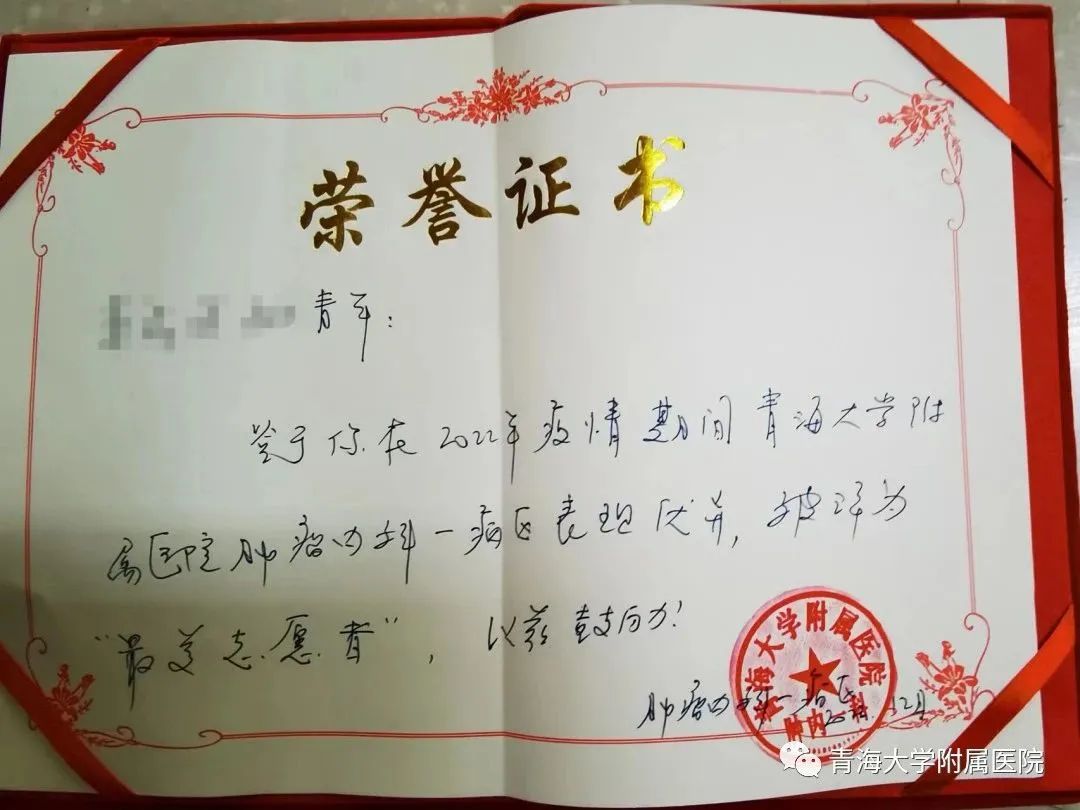 荣誉证书
青年：
鉴于你在2022年疫情期间青海大学附
属医院肿瘤内科一病区表现优异，被评为
“最美志愿者”，以兹鼓励！
青海大学附属医院
肿瘤内科一病区
12月
青海大学附属医院